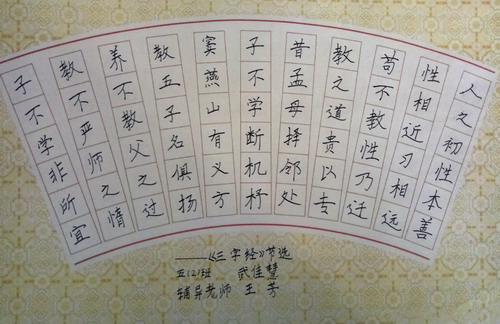 人之初性本善
性相近习相远
苟不教性乃迁
教之道贵以专
昔孟母择邻处
子不学断机杼
窦燕山有义方
教五子名俱扬
养不教父之过
教不严师之惰
子不学非所宜
——《三字经》节选
五(2)班 武佳慧
辅导老师 王芳